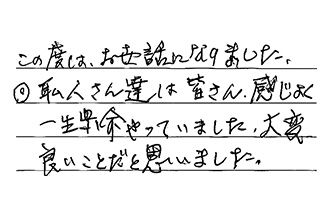 この度は、お世話になりました。
◎職人さん達は皆さん、感じよく
一生懸命やっていました、大変
良いことだと思いました。